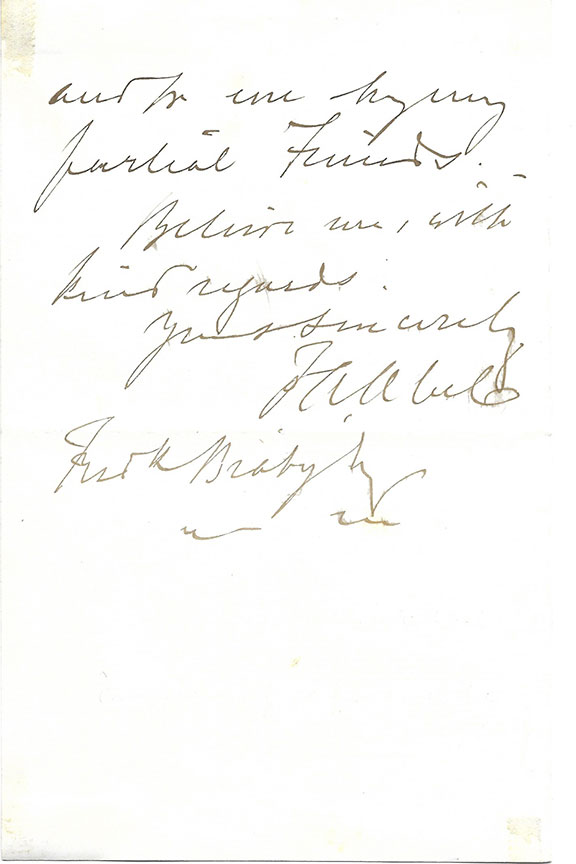 and for me by my
partial Friends.
Believe me, with
kind regards.
Yours sincerely
F A Abel
Fredk Braby Esq